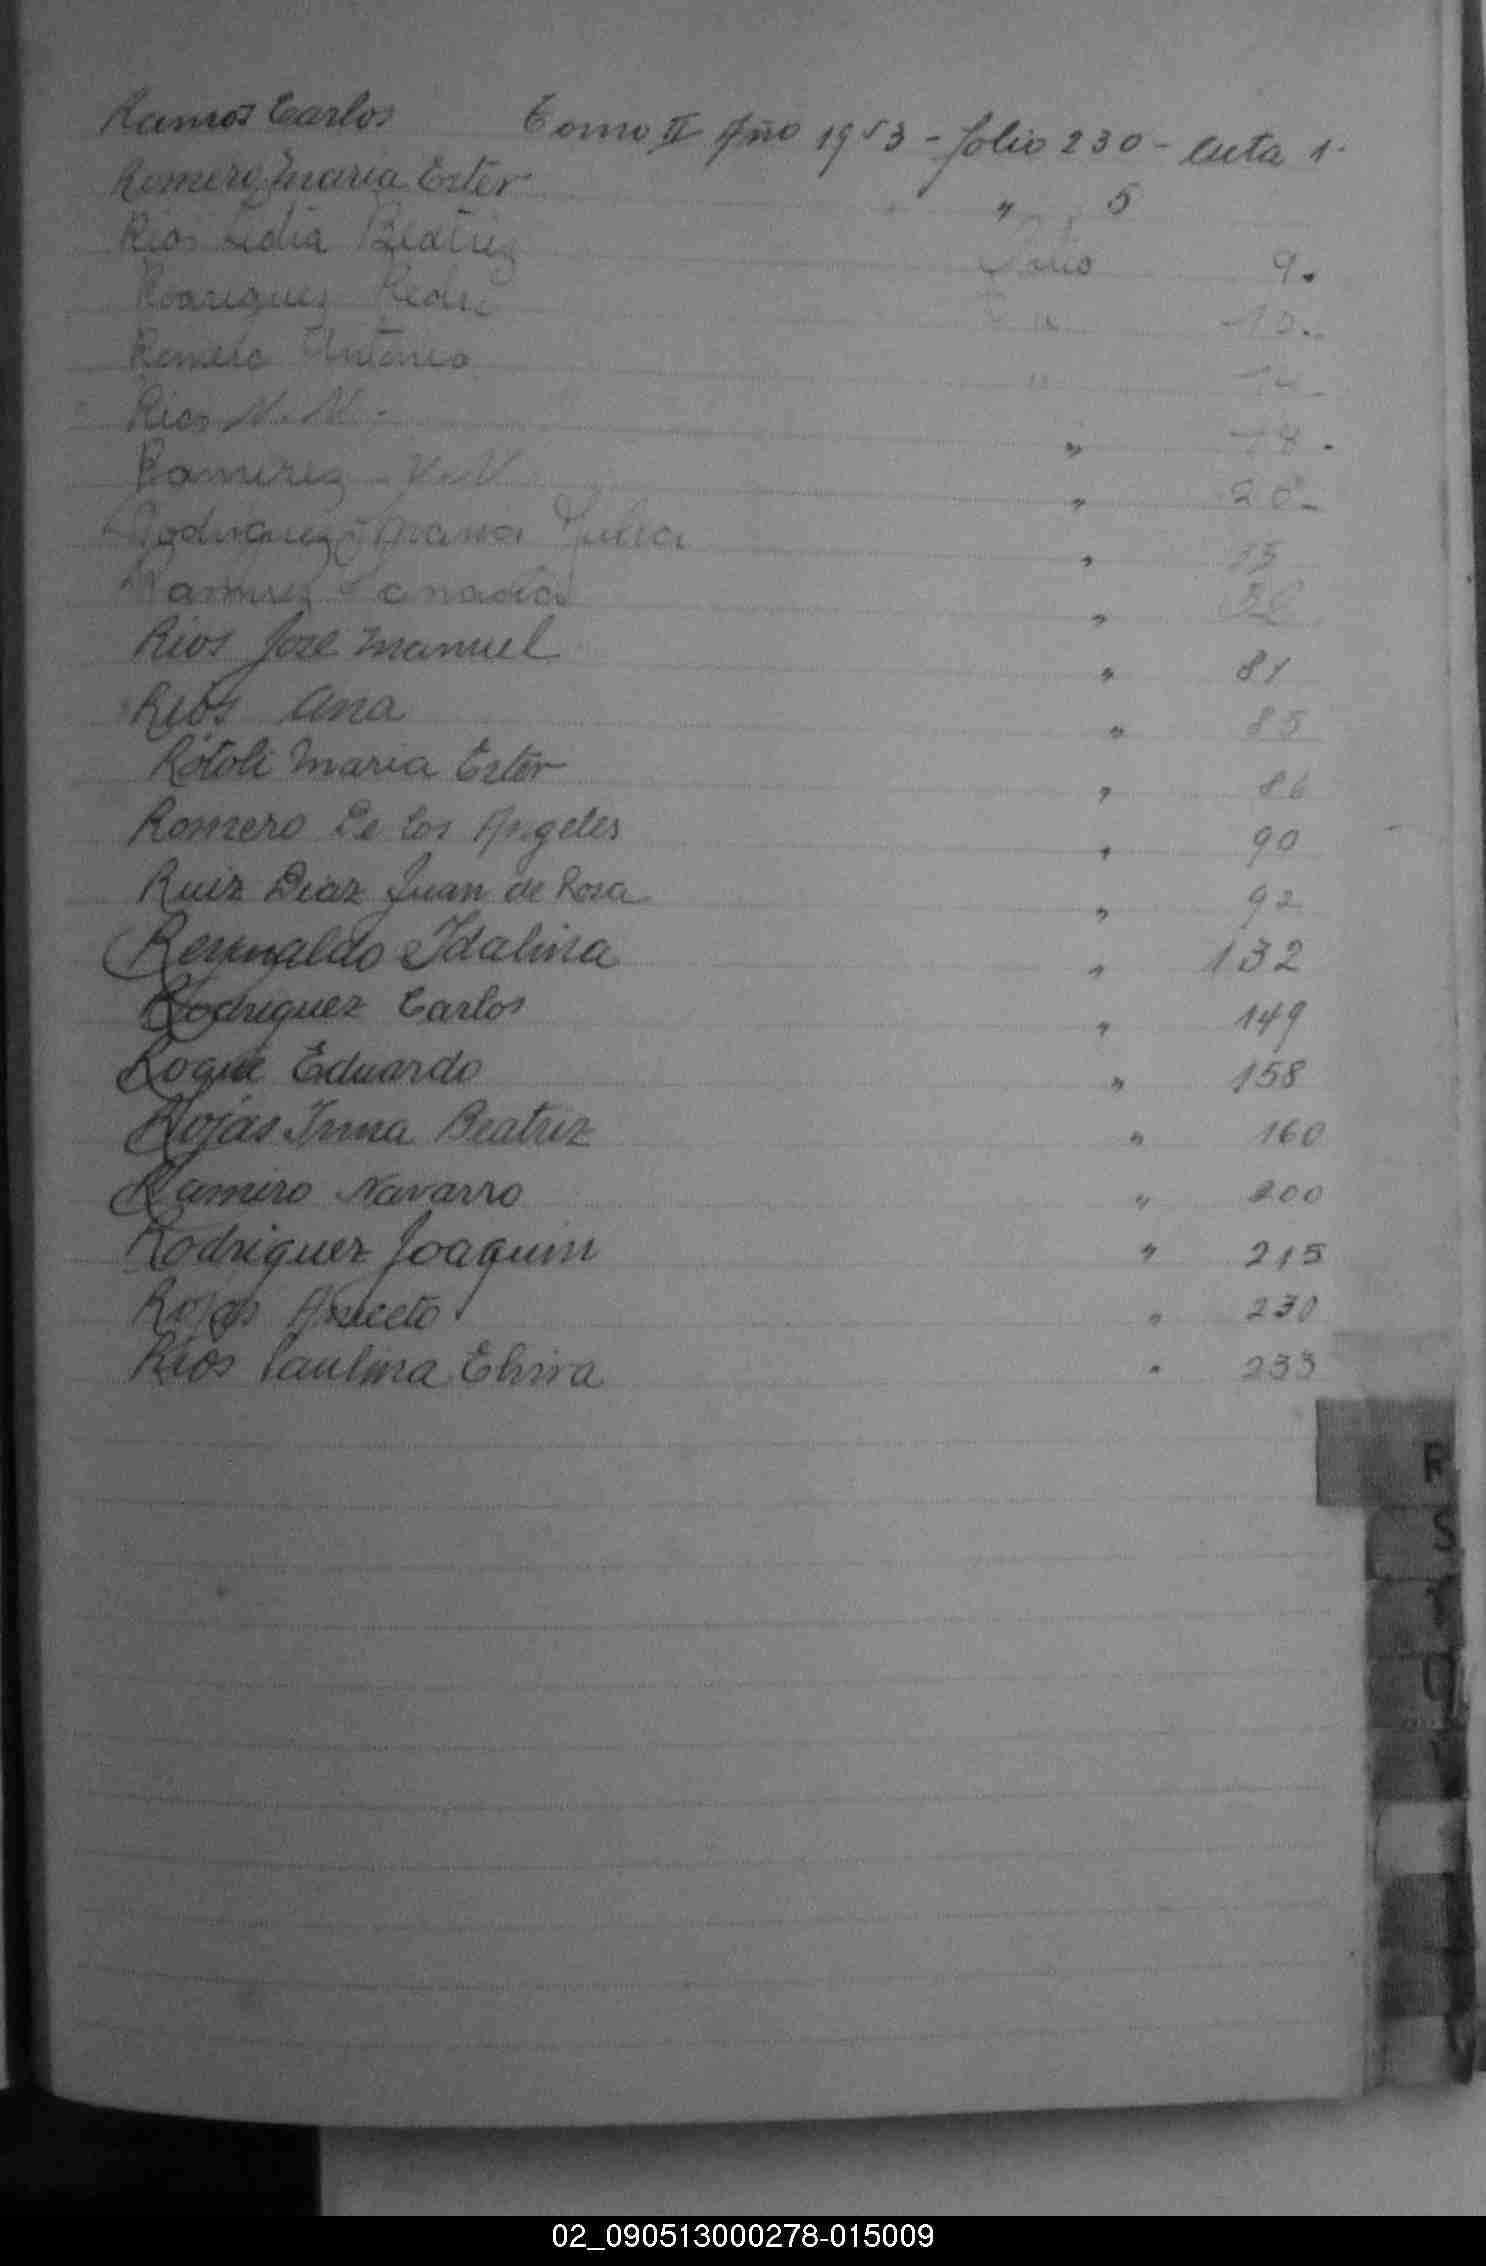 Ramos Carlos Tomo II Año 1953 - folio 230 - acta 1.
Romero, Maria Ester " 5
Rios Lidia Beatriz Folio 9.
Rodriguez Pedro " 10.
Romero Antonio " 14
Rios N. N. " 18.
Ramirez N. N. " 28
Rodriguez Maria Julia " 35
Ramirez "
Rios José Manuel " 81
Rios Ana " 85
Rótoli Maria Ester " 86
Romero De los Angeles " 90
Ruiz Diaz Juan de Rosa " 92
Reynaldo Idalina " 132
Rodriguez Carlos " 149
Roque Eduardo " 158
Rojas Irma Beatriz " 160
Ramiro Navarro " 200
Rodriguez Joaquin " 215
Rojas Aniceto " 230
Rios Paulina Elvira " 233
R
S
T
U
V
02_090513000278-015009